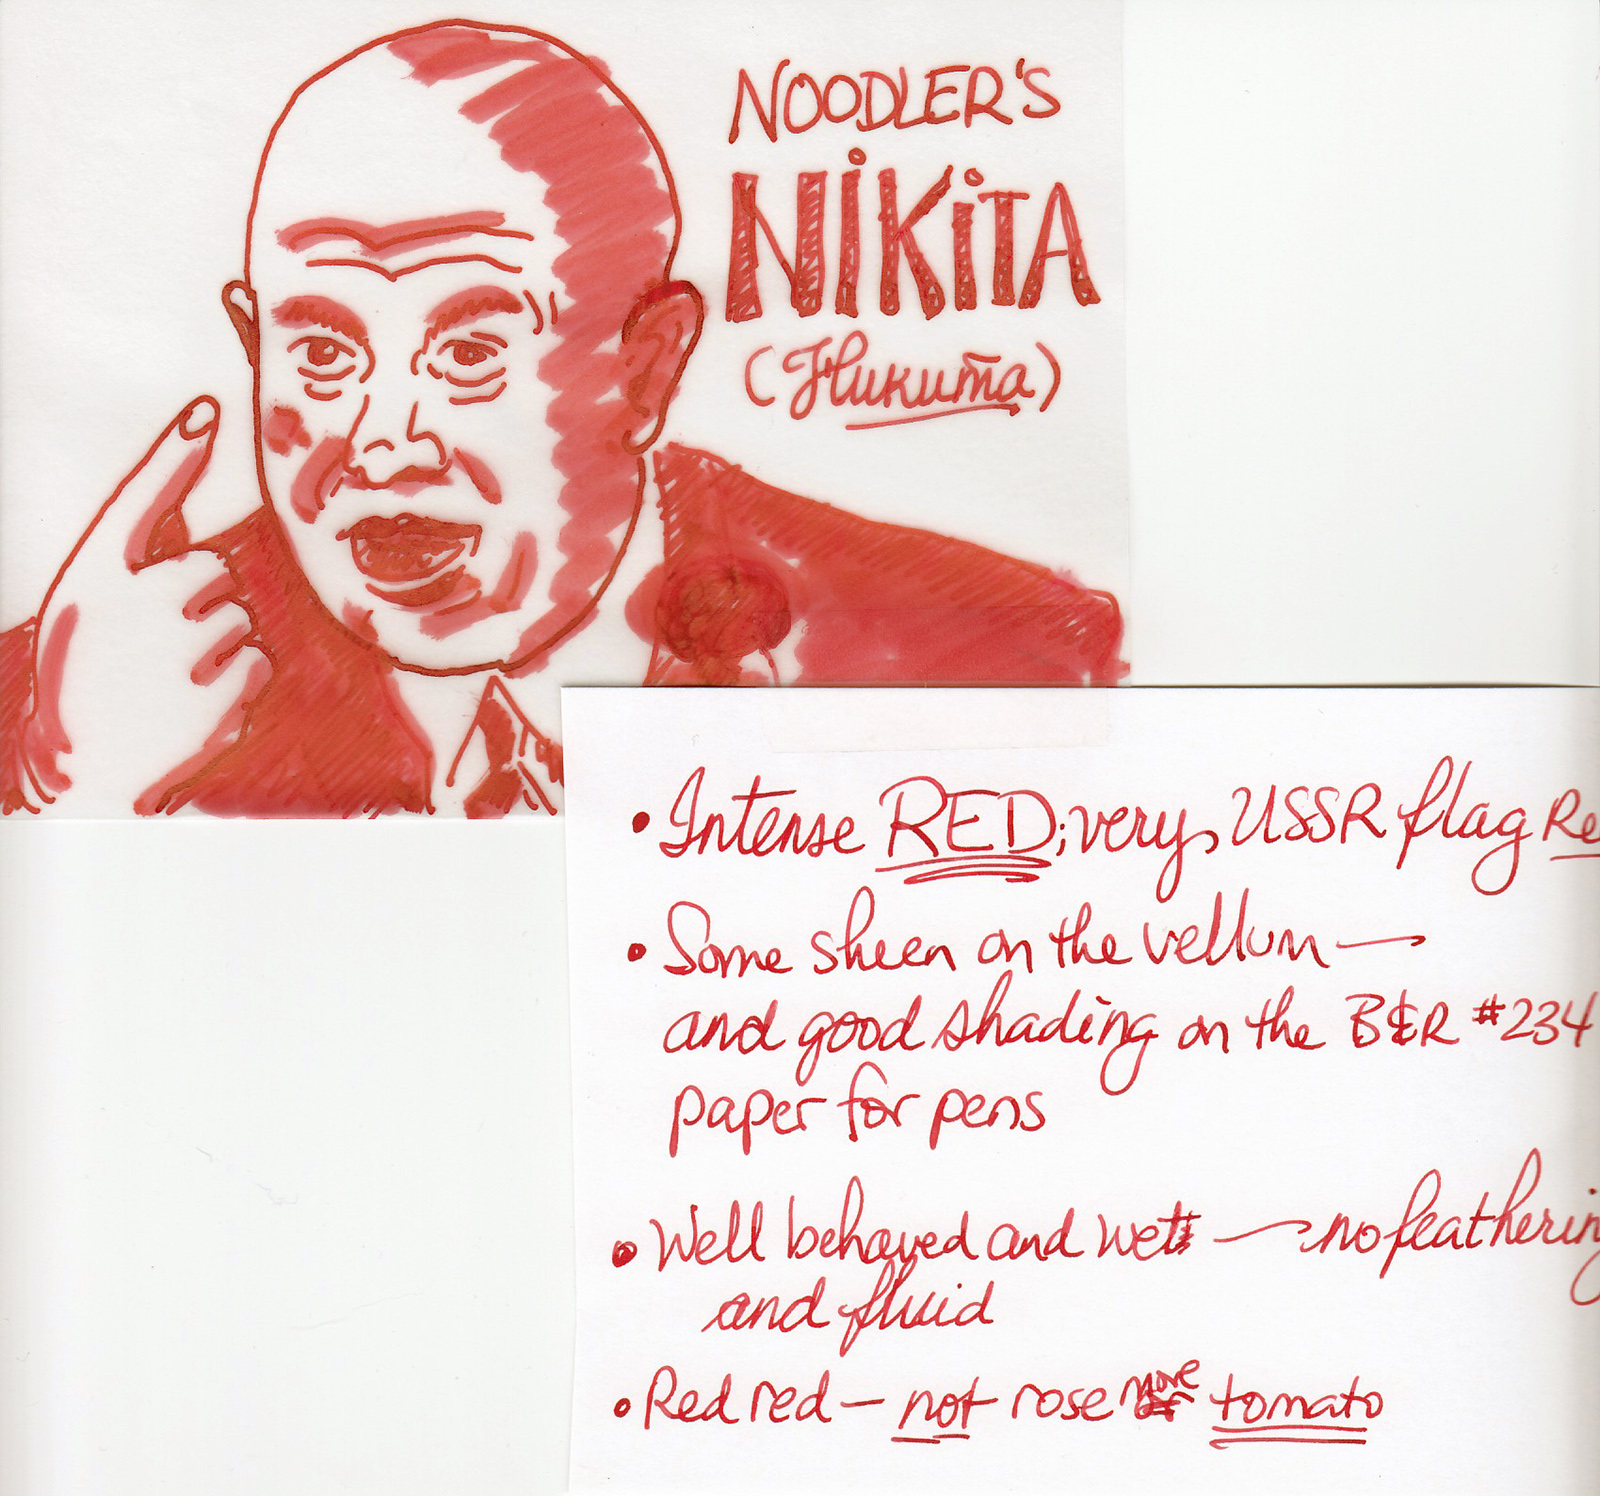 NOODLER'S
NIKITA
(Никита)
• Intense RED; very, USSR flag Re
• Some sheen on the vellum —
and good shading on the B&R #234
paper for pens
• Well behaved and wet — no feathering
and fluid
• Red red — not rose more tomato